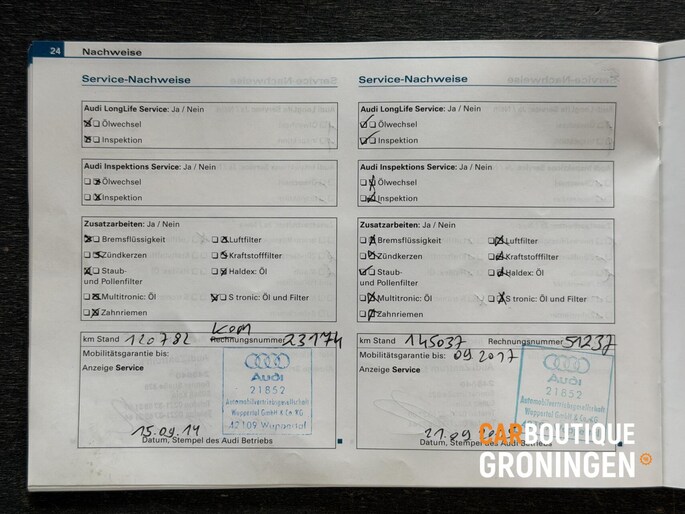 24 Nachweise
Service-Nachweise
Audi LongLife Service: Ja / Nein
Ölwechsel
Inspektion
Audi Inspektions Service: Ja / Nein
Ölwechsel
Inspektion
Zusatzarbeiten: Ja / Nein
Bremsflüssigkeit Luftfilter
Zündkerzen Kraftstofffilter
Staub- Haldex: Öl
und Pollenfilter
Multitronic: Öl S tronic: Öl und Filter
Zahnriemen
KOM
km Stand 120782 Rechnungsnummer 23174
Mobilitätsgarantie bis:
Anzeige Service
Audi
21852
Automobilvertriebsgesellschaft
Wuppertal GmbH & Co. KG
42109 Wuppertal
15.09.14
Datum, Stempel des Audi Betriebs
Service-Nachweise
Audi LongLife Service: Ja / Nein
Ölwechsel
Inspektion
Audi Inspektions Service: Ja / Nein
Ölwechsel
Inspektion
Zusatzarbeiten: Ja / Nein
Bremsflüssigkeit Luftfilter
Zündkerzen Kraftstofffilter
Staub- Haldex: Öl
und Pollenfilter
Multitronic: Öl S tronic: Öl und Filter
Zahnriemen
km Stand 145037 Rechnungsnummer 51237
Mobilitätsgarantie bis: 09.2017
Anzeige Service
Audi
21852
Automobilvertriebsgesellschaft
Wuppertal GmbH & Co. KG
21.09
Datum, Stempel des Audi Betriebs
CARBOUTIQUE
GRONINGEN